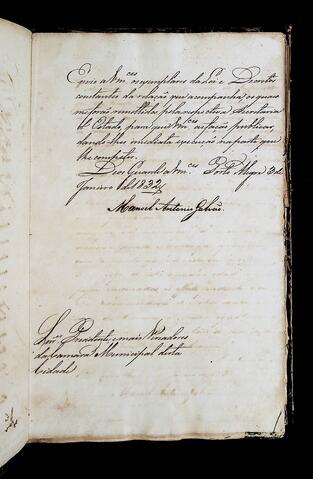 Envio a Vm.ces os exemplares da Lei e Decretos
constantes da relação que acompanha, os quaes
me forão remettidos pela respectiva Secretaria
d'Estado, para que Vm.ces os fação publicar,
dando-lhes immediata execução na parte que
lhe competir.
Deos Guarde a Vm.ces Porto Alegre
Janeiro de 1832
Manoel Antonio Galvão
Snr.es Presidente, e mais Vereadores
da Camara Municipal desta
Cidade